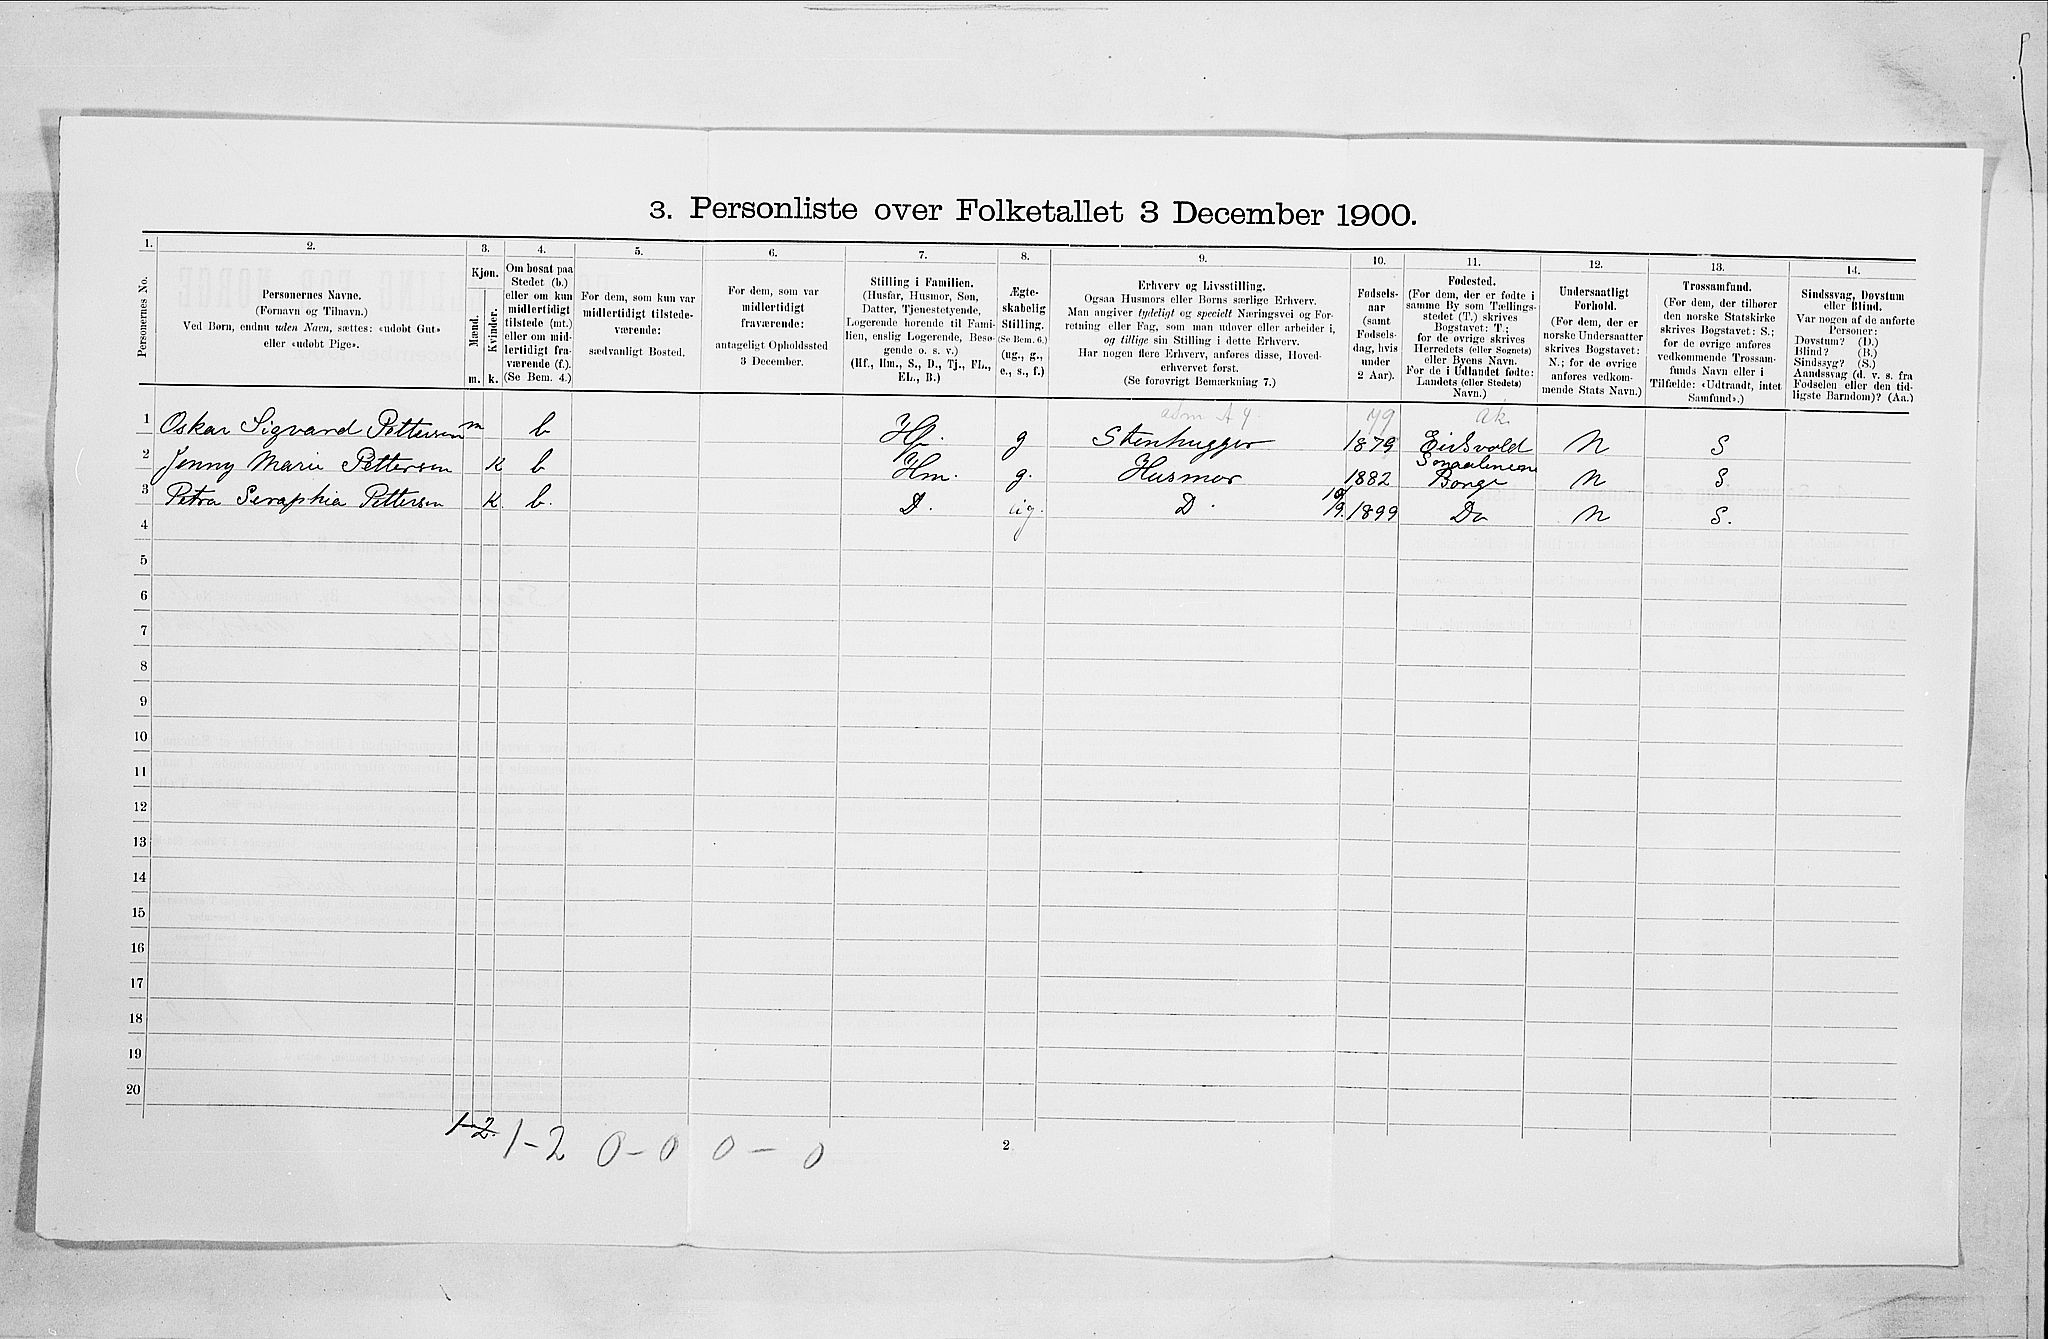 3. Personliste over Folketallet 3 December 1900.
1.
2.
3.
4.
5.
6.
7.
8.
9.
10.
11.
12.
13.
14.
Personernes No.
Personernes Navne.
(Fornavn og Tilnavn.)
Ved Børn, endnu uden Navn, sættes: «udøbt Gut»
eller «udøbt Pige».
Kjøn.
Mænd.
Kvinder.
m.
k.
Om bosat paa
Stedet (b.)
eller om kun
midlertidigt
tilstede (mt.)
eller om mid-
lertidigt fra-
værende (f.).
(Se Bem. 4.)
For dem, som kun var
midlertidigt tilstede-
værende:
sædvanligt Bosted.
For dem, som var
midlertidigt
fraværende:
antageligt Opholdssted
3 December.
Stilling i Familien.
(Husfar, Husmor, Søn,
Datter, Tjenestetyende,
Logerende hørende til Fami-
lien, enslig Logerende, Besø-
gende o. s. v.)
(Hf., Hm., S., D., Tj., FL.,
EL., B.)
Ægte-
skabelig
Stilling.
(Se Bem. 6.)
(ug., g.,
e., s., f.)
Erhverv og Livsstilling.
Ogsaa Husmors eller Børns særlige Erhverv.
Man angiver tydeligt og specielt Næringsvei og For-
retning eller Fag, som man udøver eller arbeider i,
og tillige sin Stilling i dette Erhverv.
Har nogen flere Erhverv, anføres disse, Hoved-
erhvervet først.
(Se forøvrigt Bemærkning 7.)
Fødsels-
aar
(samt
Fødsels-
dag, hvis
under
2 Aar).
Fødested.
(For dem, der er fødte i
samme By som Tællings-
stedet (T.) skrives
Bogstavet: T.;
for de øvrige skrives
Herredets (eller Sognets)
eller Byens Navn.
For de i Udlandet fødte:
Landets (eller Stedets)
Navn.)
Undersaatligt
Forhold.
(For dem, der er
norske Undersaatter
skrives Bogstavet:
N.; for de øvrige
anføres vedkom-
mende Stats Navn.)
Trossamfund.
(For dem, der tilhører
den norske Statskirke
skrives Bogstavet: S.;
for de øvrige anføres
vedkommende Trossam-
funds Navn eller i
Tilfælde: «Udtraadt, intet
Samfund».)
Sindssvag, Døvstum
eller Blind.
Var nogen af de anførte
Personer:
Døvstum? (D.)
Blind? (B.)
Sindssyg? (S.)
Aandssvag (d. v. s. fra
Fødselen eller den tid-
ligste Barndom)? (Aa.)
79 Ak.
1 Oskar Sigvard Pettersen m b Hf. g Stenhugger 1879 Eidsvold N S
Smaalenene
2 Jenny Marie Pettersen K b Hm. g. Husmor 1882 Borge N S
3 Petra Seraphia Pettersen K. b. D. ug. D. 10/9. 1899 Do N S.
4
5
6
7
8
9
10
11
12
13
14
15
16
17
18
19
20
1-2. 1-2 0-0 0-0
2